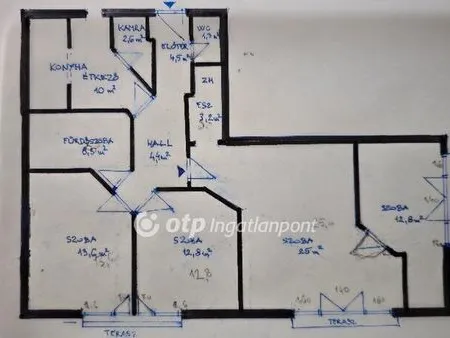 KAMRA
2,6 m²
ELŐTÉR
4,5 m²
WC
1,3 m²
KONYHA
ÉTKEZŐ
10 m²
ZH
3,2 m²
FÜRDŐSZOBA
8,5 m²
HALL
4,4 m²
SZOBA
13,6 m²
SZOBA
12,8 m²
12,8
SZOBA
25 m²
SZOBA
12,8 m²
otp Ingatlanpont
140
TERASZ
TERASZ